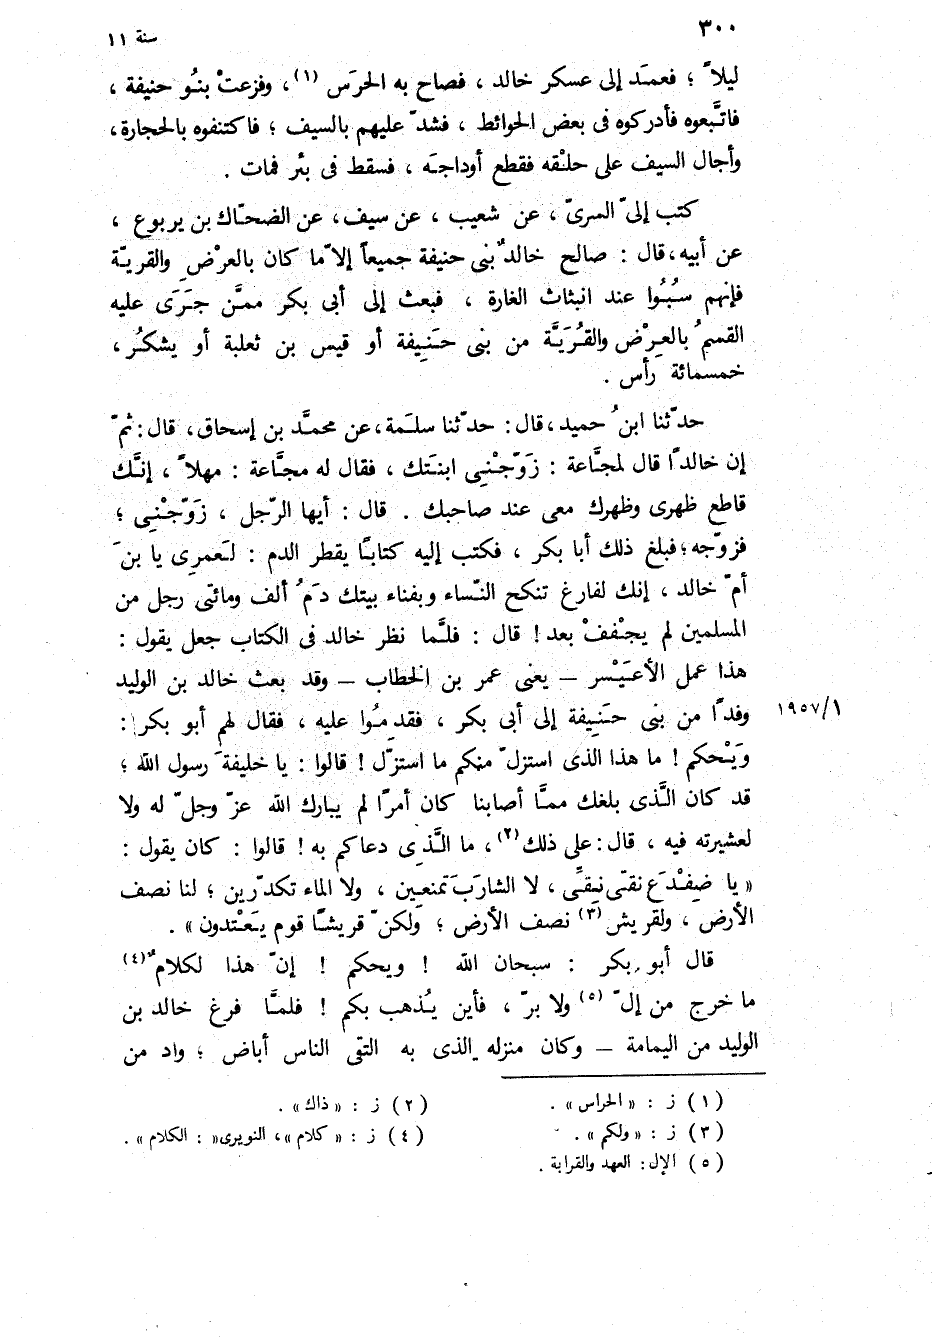 ٣٠٠
سنة ١١
ليلاً ؛ فعمَد إلى عسكر خالد ، فصاح به الحرَس (١) ، وفزعتْ بنُو حنيفة ،
فاتَّبعوه فأدركوه فى بعض الحوائط ، فشدّ عليهم بالسيف ؛ فاكتنفوه بالحجارة ،
وأجال السيف على حلْقه فقطع أوداجَه ، فسقط فى بئر فمات .
كتب إلىّ السرىّ ، عن شعيب ، عن سيف ، عن الضحّاك بن يربوع ،
عن أبيه ، قال : صالح خالدٌ بنى حنيفة جميعاً إلاّ ما كان بالعرْضِ والقريّة
فإنهم سُبُوا عند انبثاث الغارة ، فبعث إلى أبى بكر ممَّن جَرَى عليه
القسمُ بالعِرْض والقُرَيَّة من بنى حَنِيفة أو قيس بن ثعلبة أو يشكُر ،
خمسمائة رأس .
حدّثنا ابنُ حميد ، قال : حدّثنا سلَمة ، عن محمَّد بن إسحاق ، قال : ثمّ
إن خالدًا قال لمجَّاعة : زَوّجْنِى ابنتَك ، فقال له مجَّاعة : مهلاً ، إنَّك
قاطع ظهرى وظهرك معى عند صاحبك . قال : أيها الرّجل ، زَوّجْنِى ؛
فزوّجه ؛ فبلغ ذلك أبا بكر ، فكتب إليه كتابًا يقطر الدم : لَعمرِى يا بنَ
أمّ خالد ، إنك لفارغ تنكح النّساء وبفناء بيتك دَمُ ألف ومائتى رجل من
المسلمين لم يجْففْ بعد ! قال : فلَّما نظر خالد فى الكتاب جعل يقول :
هذا عمل الأعَيْسر – يعنى عمر بن الخطاب – وقد بعث خالد بن الوليد
وفدًا من بنى حَنِيفة إلى أبى بكر ، فقدِمُوا عليه ، فقال لهم أبو بكر :
١٩٥٧/١
وَيْحكم ! ما هذا الذى استزلّ منكم ما استزلّ ! قالوا : يا خليفةَ رسول الله ؛
قد كان الَّذى بلغك ممَّا أصابنا كان أمرًا لم يبارك الله عزّ وجلّ له ولا
لعشيرته فيه ، قال : على ذلك (٢) ، ما الَّذِى دعاكم به ! قالوا : كان يقول :
« يا ضِفْدَع نقّى نِقّى ، لا الشاربَ تمنعين ، ولا الماء تكدّرين ؛ لنا نصف
الأرض ، ولقريش (٣) نصف الأرض ؛ ولكنّ قريشًا قوم يَعْتدون » .
قال أبو بكر : سبحان الله ! ويحكم ! إنّ هذا لكلامٌ (٤)
ما خرج من إلّ (٥) ولا برّ ، فأين يُذهب بكم ! فلمَّا فرغ خالد بن
الوليد من اليمامة – وكان منزله الذى به التقى الناس أباض ؛ واد من
(١) ز : « الحراس » .
(٢) ز : « ذاك » .
(٣) ز : « ولكم » .
(٤) ز : « كلام » ، النويرى « : الكلام » .
(٥) الإل : العهد والقرابة .